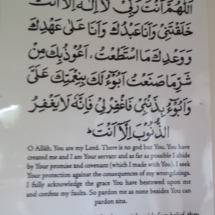 اَللّٰهُمَّ أَنْتَ رَبِّيْ لَا إِلٰهَ إِلَّا أَنْتَ
خَلَقْتَنِيْ وَأَنَا عَبْدُكَ وَأَنَا عَلٰى عَهْدِكَ
وَوَعْدِكَ مَا اسْتَطَعْتُ، أَعُوْذُ بِكَ مِنْ
شَرِّ مَا صَنَعْتُ أَبُوْءُ لَكَ بِنِعْمَتِكَ عَلَيَّ
وَأَبُوْءُ بِذَنْبِيْ فَاغْفِرْ لِيْ فَإِنَّهُ لَا يَغْفِرُ
الذُّنُوْبَ إِلَّا أَنْتَ
O Allâh, You are my Lord. There is no god but You. You have
created me and I am Your servant and as far as possible I abide
by Your promise and covenant (which I made with You). I seek
Your protection against the consequences of my wrongdoings.
I fully acknowledge the grace You have bestowed upon me
and confess my faults. So pardon me as none besides You can
pardon sins.